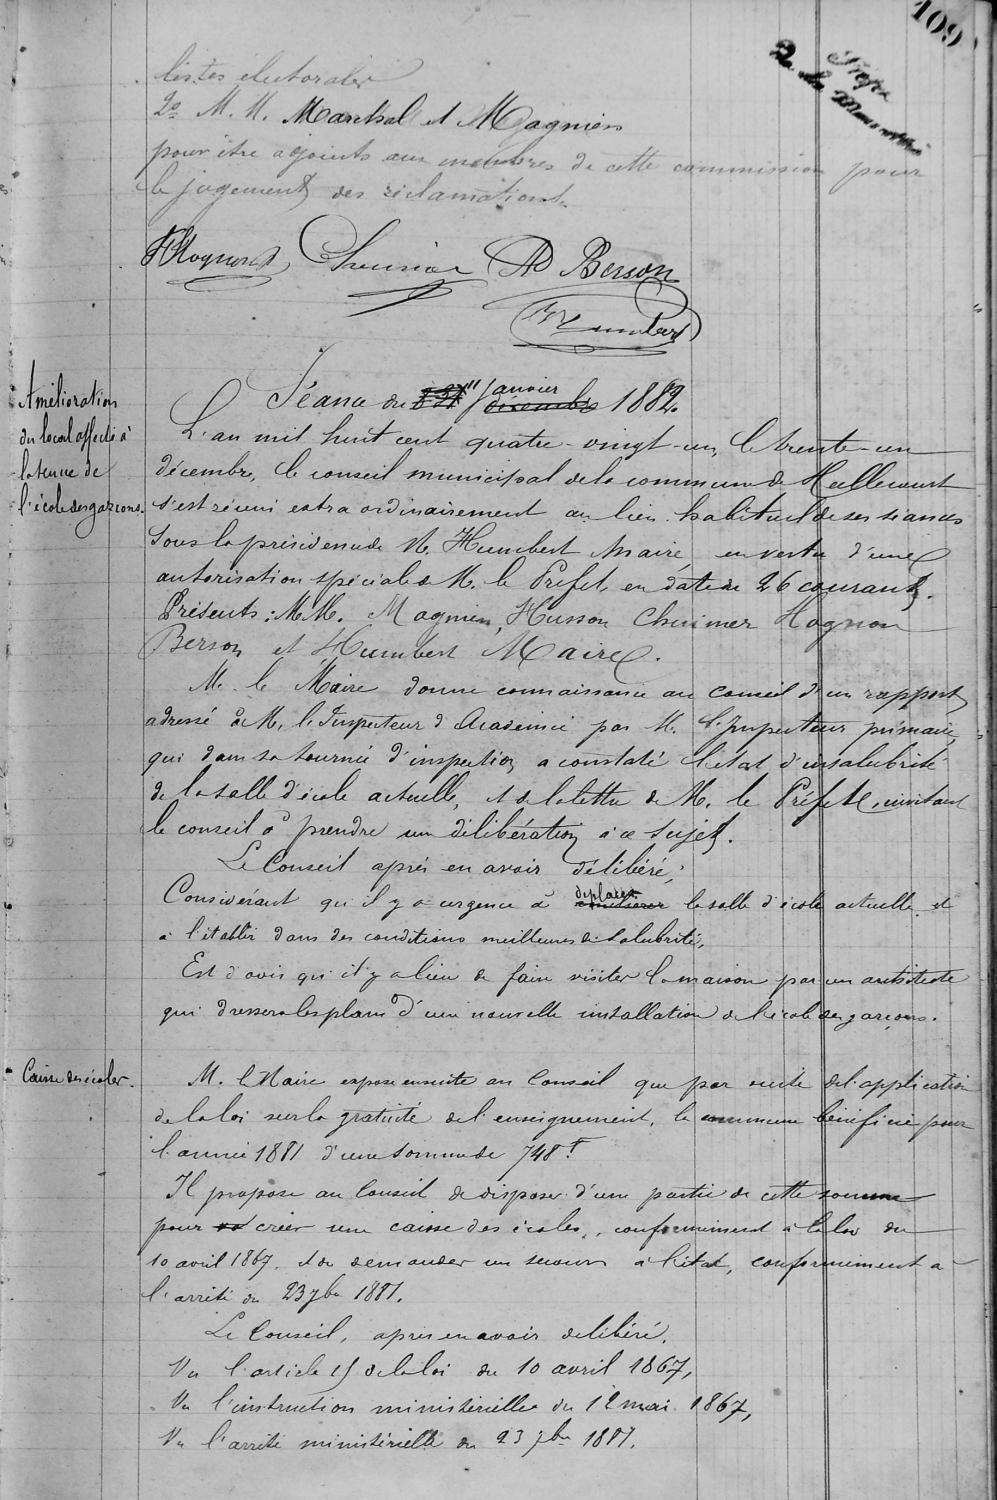 109
listes électorales
2o M. M. Marchal et Magnien
pour être adjoints aux membres de cette commission pour
le jugement des réclamations.
Hognon Churimer AD Berson
Humbert
Séance du 1er Janvier 1882.
Amélioration
du local affecté à
la tenue de
l'école des garçons.
L'an mil huit cent quatre-vingt-un, le trente-un
décembre, le conseil municipal de la commune de Hallecourt
s'est réuni extraordinairement au lieu habituel de ses séances
sous la présidence de M. Humbert Maire en vertu d'une
autorisation spéciale de M. le Préfet, en date du 26 courant.
Présents : MM. Magnien, Husson Churimer Hognon
Berson et Humbert Maire.
M. le Maire donne connaissance au conseil d'un rapport
adressé à M. l'Inspecteur d'Académie par M. l'Inspecteur primaire,
qui dans sa tournée d'inspection a constaté l'état d'insalubrité
de la salle d'école actuelle, et de la lettre de M. le Préfet, invitant
le conseil à prendre un délibération à ce sujet.
Le Conseil après en avoir délibéré ;
Considérant qu'il y a urgence à déplacer la salle d'école actuelle et
à l'établir dans des conditions meilleures de salubrité,
Est d'avis qu'il y a lieu de faire visiter la maison par un architecte
qui dressera les plans d'une nouvelle installation de l'école des garçons.
Caisse des écoles.
M. le Maire expose ensuite au Conseil que par suite de l'application
de la loi sur la gratuité de l'enseignement, la commune bénéficie pour
l'année 1881 d'une somme de 748f
Il propose au Conseil de disposer d'une partie de cette somme
pour créer une caisse des écoles, conformément à la loi du
10 avril 1867, et de demander un secours à l'état, conformément à
l'arrêté du 23 7bre 1881.
Le Conseil, après en avoir délibéré,
Vu l'article 15 de la loi du 10 avril 1867,
Vu l'instruction ministérielle du 12 mai 1867,
Vu l'arrêté ministérielle du 23 7bre 1881.